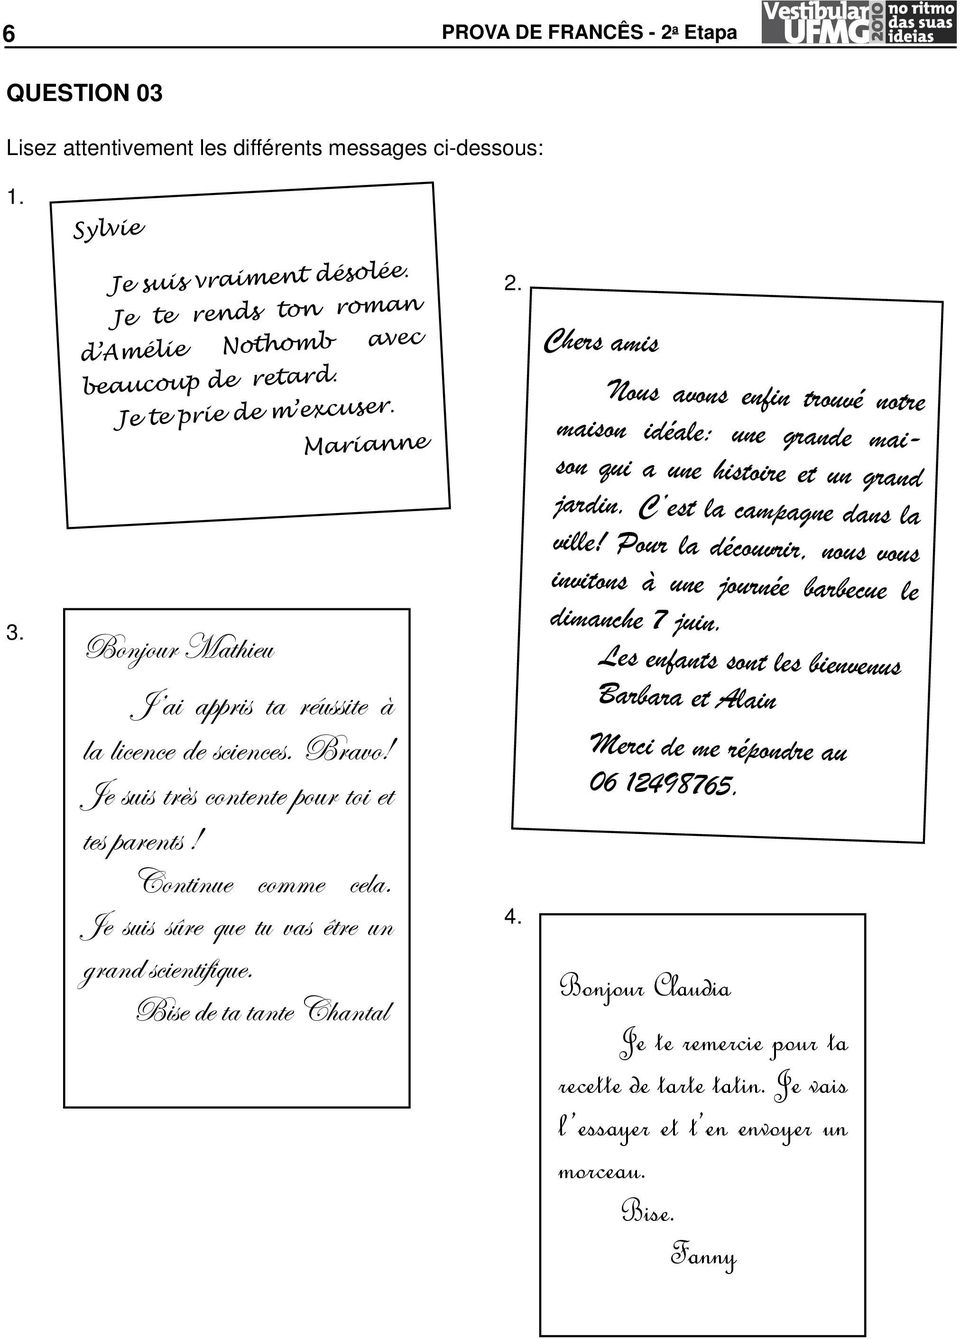 6
PROVA DE FRANCÊS - 2ª Etapa
Vestibular UFMG 2010 no ritmo das suas ideias
QUESTION 03
Lisez attentivement les différents messages ci-dessous:
1.
Sylvie
Je suis vraiment désolée.
Je te rends ton roman
d'Amélie Nothomb avec
beaucoup de retard.
Je te prie de m'excuser.
Marianne
2.
Chers amis
Nous avons enfin trouvé notre
maison idéale: une grande mai-
son qui a une histoire et un grand
jardin. C'est la campagne dans la
ville! Pour la découvrir, nous vous
invitons à une journée barbecue le
dimanche 7 juin.
Les enfants sont les bienvenus
Barbara et Alain
Merci de me répondre au
06 12498765.
3.
Bonjour Mathieu
J'ai appris ta réussite à
la licence de sciences. Bravo!
Je suis très contente pour toi et
tes parents !
Continue comme cela.
Je suis sûre que tu vas être un
grand scientifique.
Bise de ta tante Chantal
4.
Bonjour Claudia
Je te remercie pour ta
recette de tarte tatin. Je vais
l'essayer et t'en envoyer un
morceau.
Bise.
Fanny